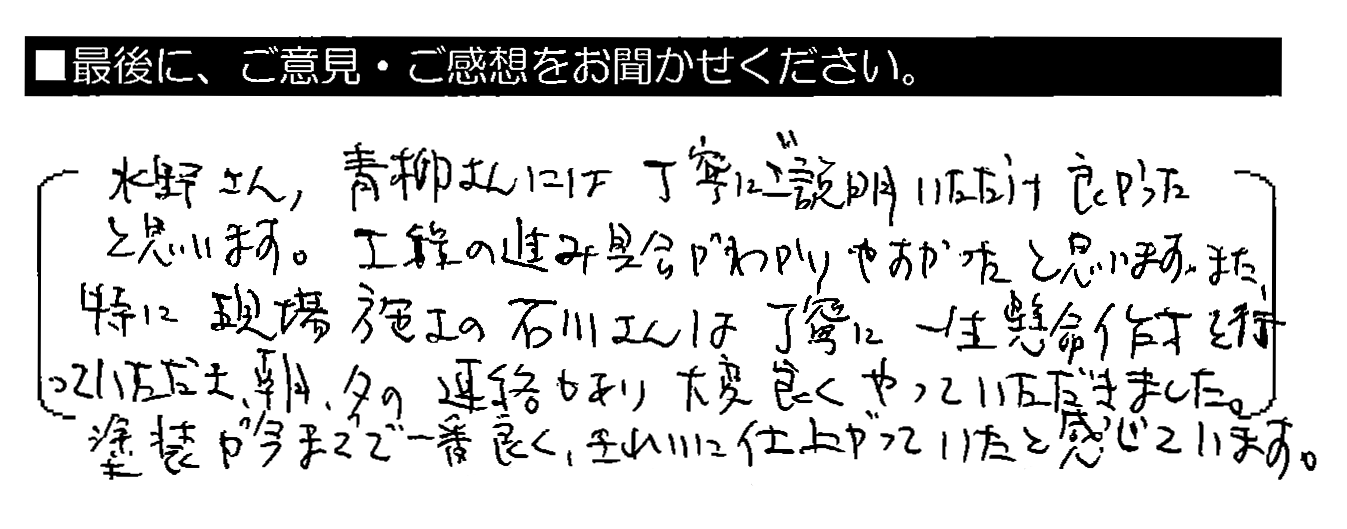 ■最後に、ご意見・ご感想をお聞かせください。
水野さん,青柳さんには丁寧にご説明いただけ良かった
と思います。工程の進み具合がわかりやすかったと思います。また、
特に現場施工の石川さんは丁寧に一生懸命作業を行
っていただき、朝、夕の連絡もあり大変良くやっていただきました。
塗装が今までで一番良く、きれいに仕上がっていたと感じています。